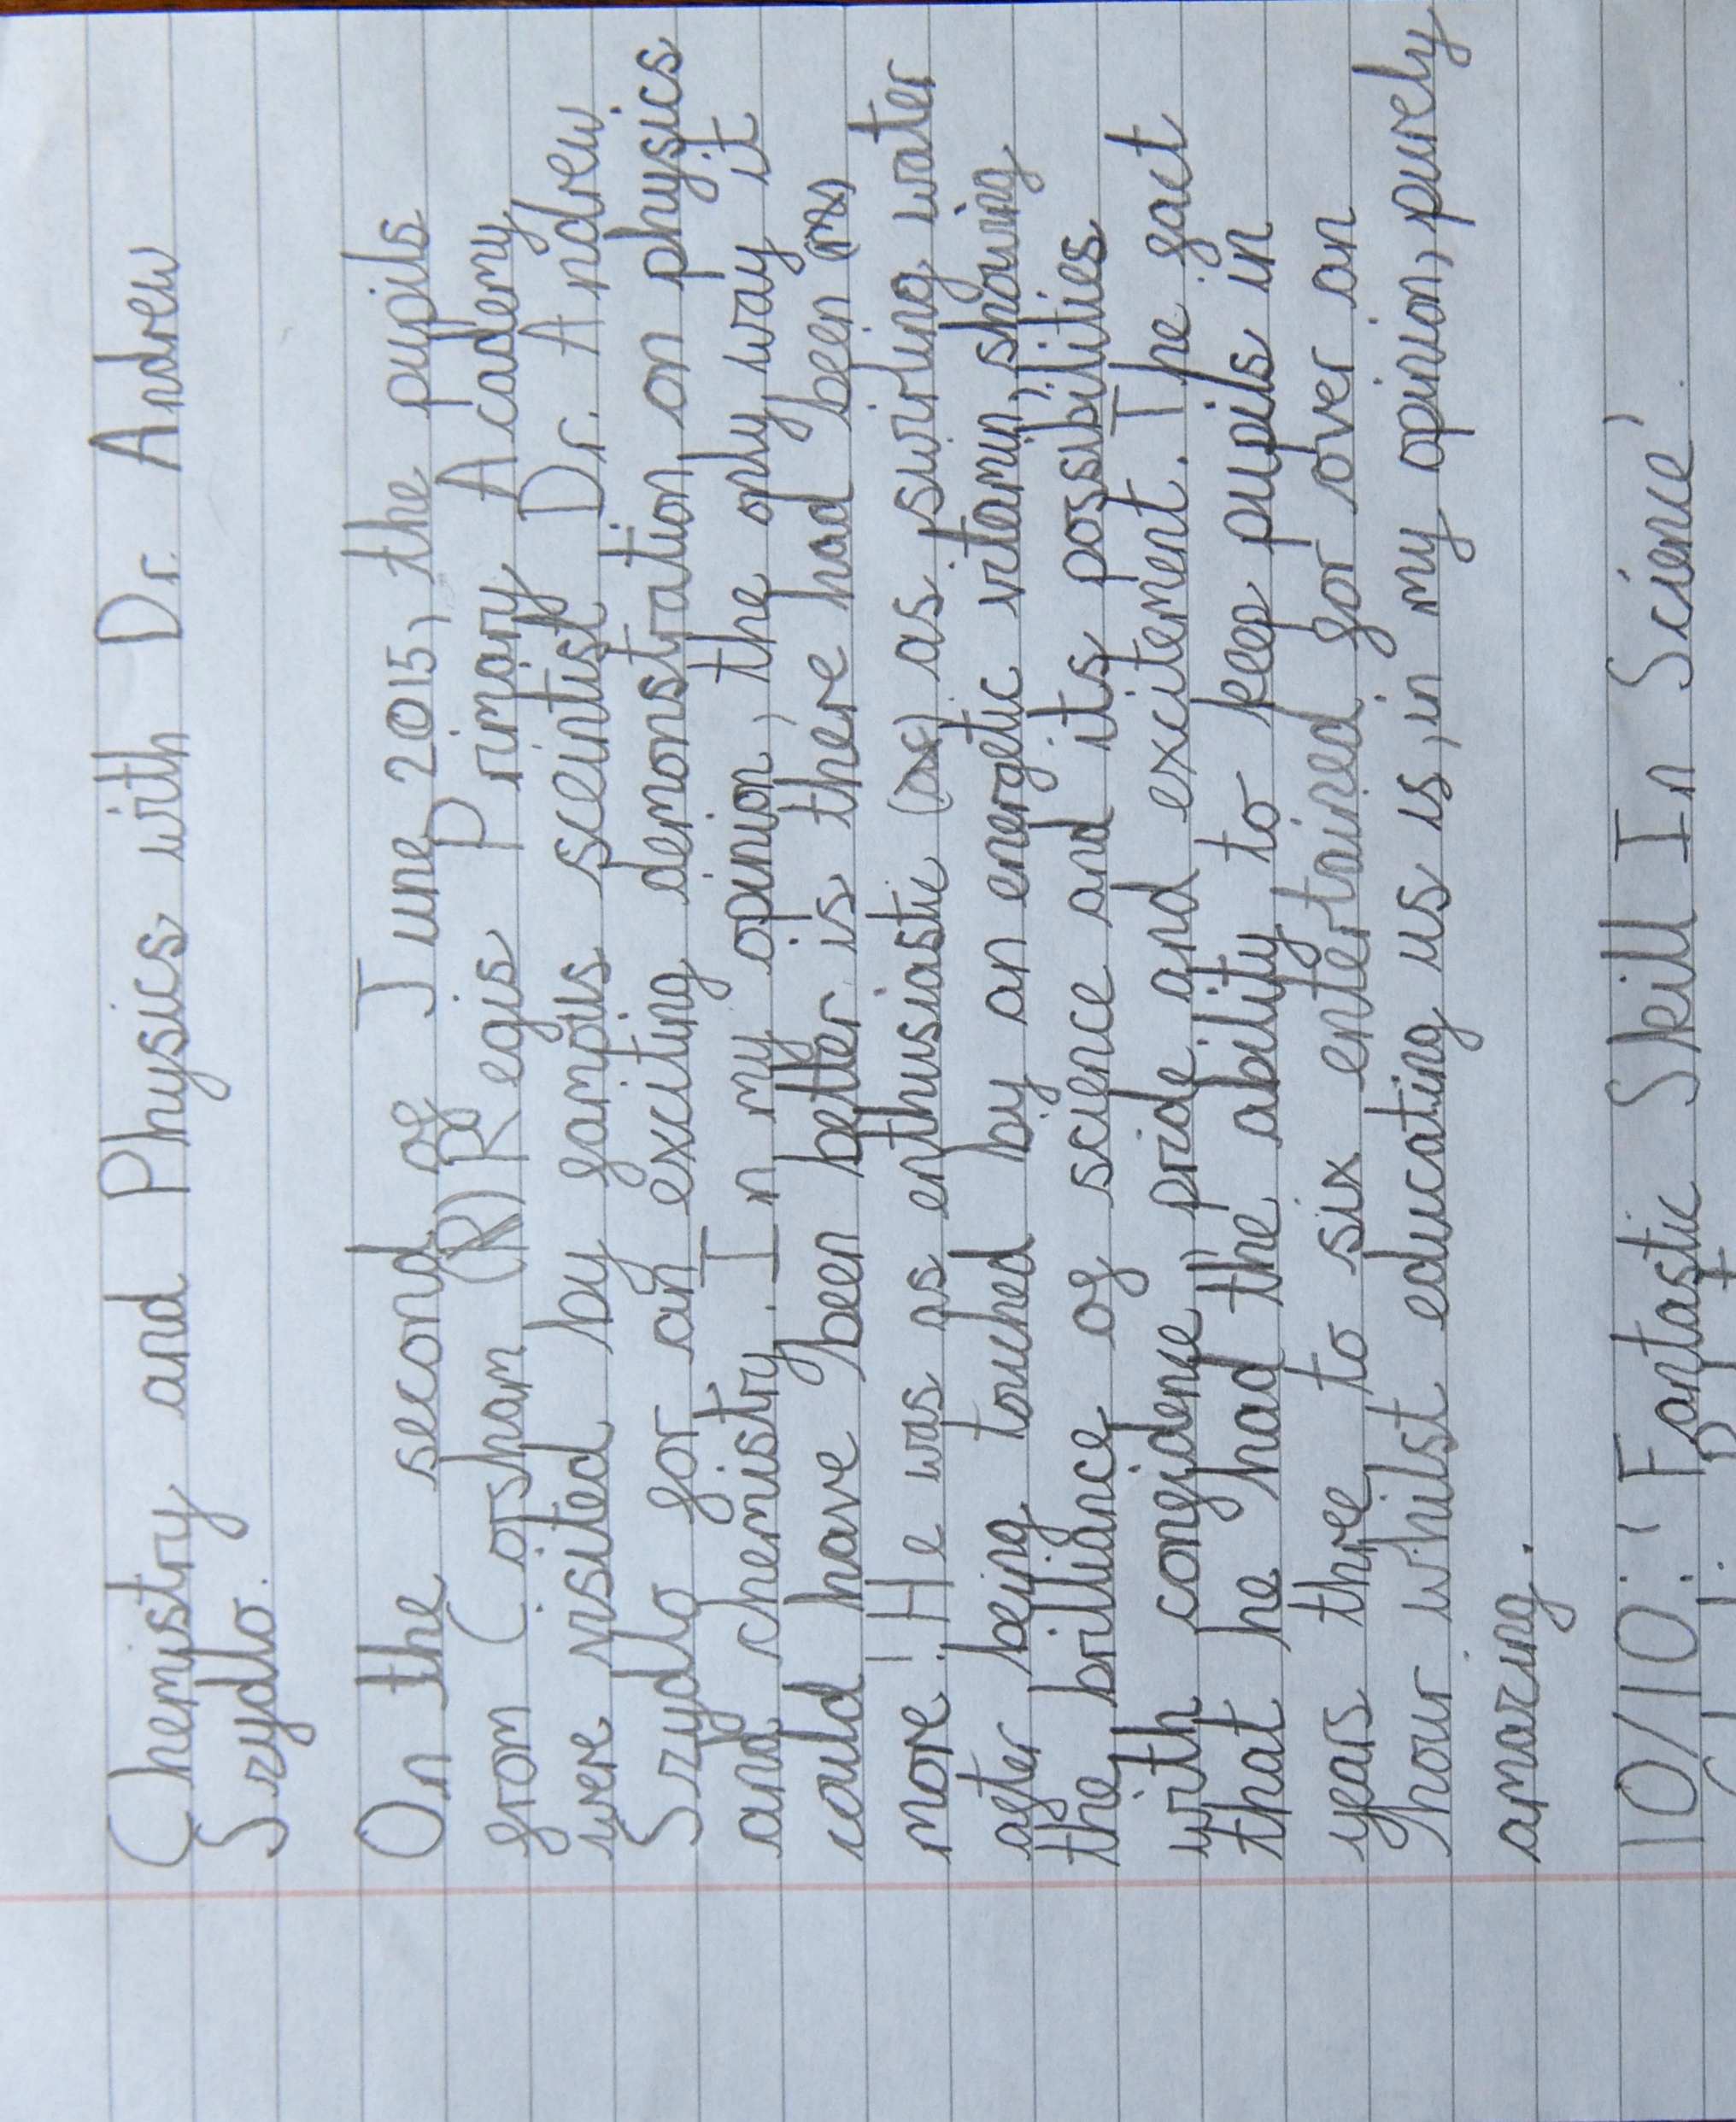 Chemistry and Physics with Dr. Andrew
Szydlo.
On the second of June 2015, the pupils
from Corsham (R) Regis Primary Academy
were visited by famous sceintist Dr. Andrew
Szydlo for an exciting demonstration on physics
and chemistry. In my opinion, the only way it
could have been better is there had been
more! He was as enthusiastic (as) as swirling water
after being touched by an energetic vitamin, showing
the brilliance of science and its possibilities
with confidence, pride and excitement. The fact
that he had the ability to keep pupils in
years three to six entertained for over an
hour whilst educating us is, in my opinion, purely
amazing.
10/10: 'Fantastic Skill In Science'